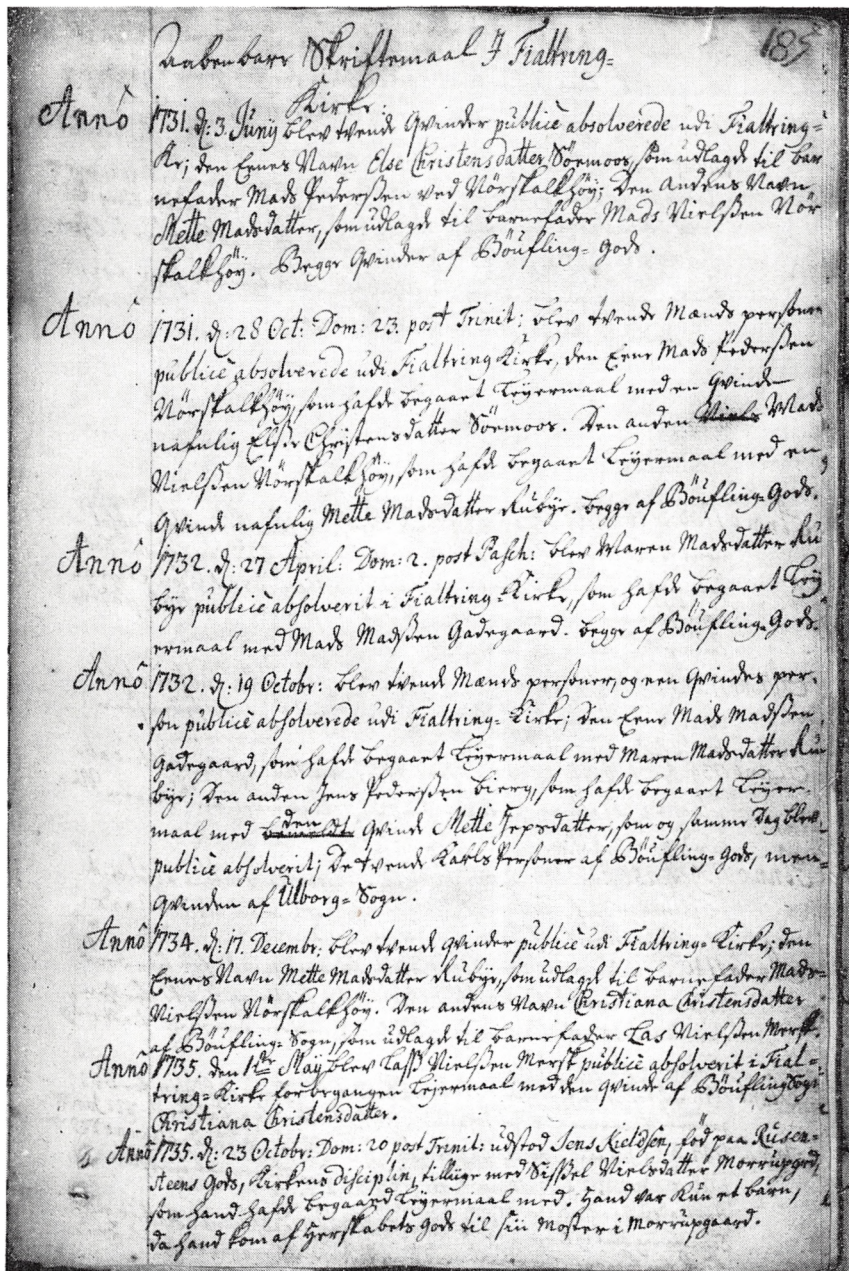 185
Aabenbare Skriftemaal J Fialtring=
Kirke.
Anno 1731. d: 3. Junij blev tvende Qvinder publicè absolverede udi Fialtring=
Kr; den Eenes Navn Else Christensdatter Söemoos, som udlagde til bar
nefader Mads Pederßen ved Nörskalkhöy; Den Andens Navn
Mette Madsdatter, som udlagde til barnefader Mads Nielßen Nör
skalkhöy. Begge Qvinder af Böufling=Gods.
Anno 1731. d: 28 Oct: Dom: 23. post Trinit: blev tvende Mænds personer
publicè absolverede udi Fialtring Kirke, den Eene Mads Pederßen
Nörskalkhöy, som hafde begaaet Leyermaal med en Qvinde
nafnlig Elsze Christensdatter Söemoos. Den anden Niels Mads
Nielßen Nörskalkhöy, som hafde begaaet Leyermaal med en
Qvinde nafnlig Mette Madsdatter Rubye. begge af Böufling=Gods.
Anno 1732. d: 27 April: Dom: 2. post Pasch: blev Maren Madsdatter Ru
bye publicè absolverit i Fialtring=Kirke, som hafde begaaet Ley
ermaal med Mads Madßen Gadegaard. begge af Böufling=Gods.
Anno 1732. d: 19 Octobr: blev tvende Mænds personer, og een Qvindes per=
son publicè absolverede udi Fialtring=Kirke; den Eene Mads Madßen
Gadegaard, som hafde begaaet Leyermaal med Maren Madsdatter Ru
bye; Den anden Jens Pederßen bierg, som hafde begaaet Leyer=
maal med den Qvinde Mette Jepsdatter, som og samme Dag blev
publicè absolverit; De tvende Karls Personer af Böufling=Gods, men
Qvinden af Ulborg=Sogn.
Anno 1734. d: 17. Decembr: blev tvende Qvinder publicè udi Fialtring=Kirke; den
Eenes Navn Mette Madsdatter Rubye, som udlagde til barnefader Mads=
Nielßen Nörskalkhöy. Den andens Navn Christiana Christensdatter
af Böufling=Sogn, som udlagde til barnefader Las Nielßen Mersk.
Anno 1735. den 1ste Maij blev Laß Nielßen Mersk publicè absolverit i Fial=
tring=Kirke for begangen Lejermaal med den Qvinde af Böufling Sogn
Christiana Christensdatter.
Anno 1735. d: 23 Octobr: Dom: 20 post Trinit: udstod Jens Kieldsen, föd paa Rusen=
steens Gods, Kirkens disciplin, tillige med Sißel Nielsdatter Morrupgrd,
som hand hafde begaaed Leyermaal med. Hand var kun et barn,
da hand kom af Herskabets Gods til sin Moster i Morrupgaard.